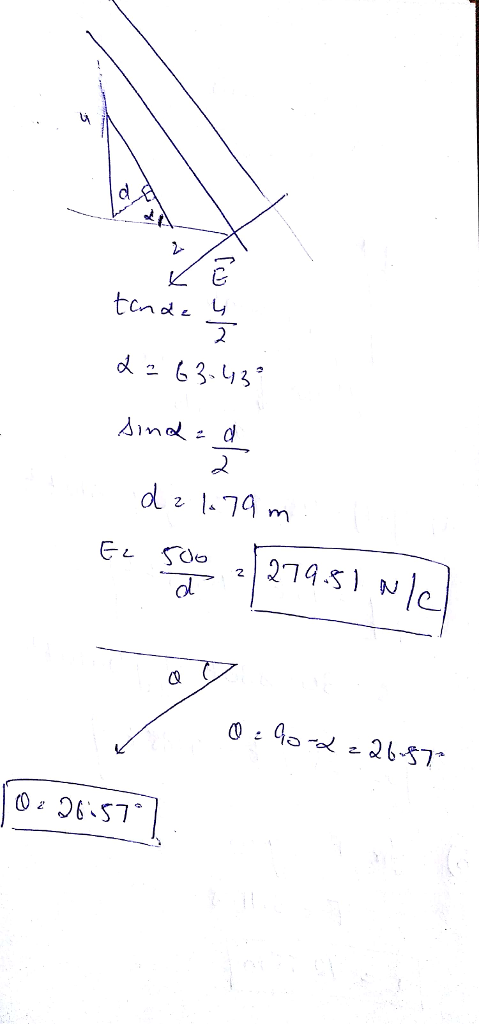 4
d
α
2
E
tanα = 4/2
α = 63.43°
sinα = d/2
d = 1.79 m
E = 500/d = 279.51 N/C
θ
θ = 90-α = 26.57°
θ = 26.57°